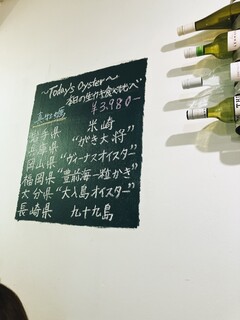 ～Today's Oyster～
本日の生ガキ食べ比べ
¥3,980-
岩手県 米崎
兵庫県 "がき大将"
岡山県 "ヴィーナスオイスター"
福岡県 "豊前海一粒かき"
大分県 "大入島オイスター"
長崎県 九十九島